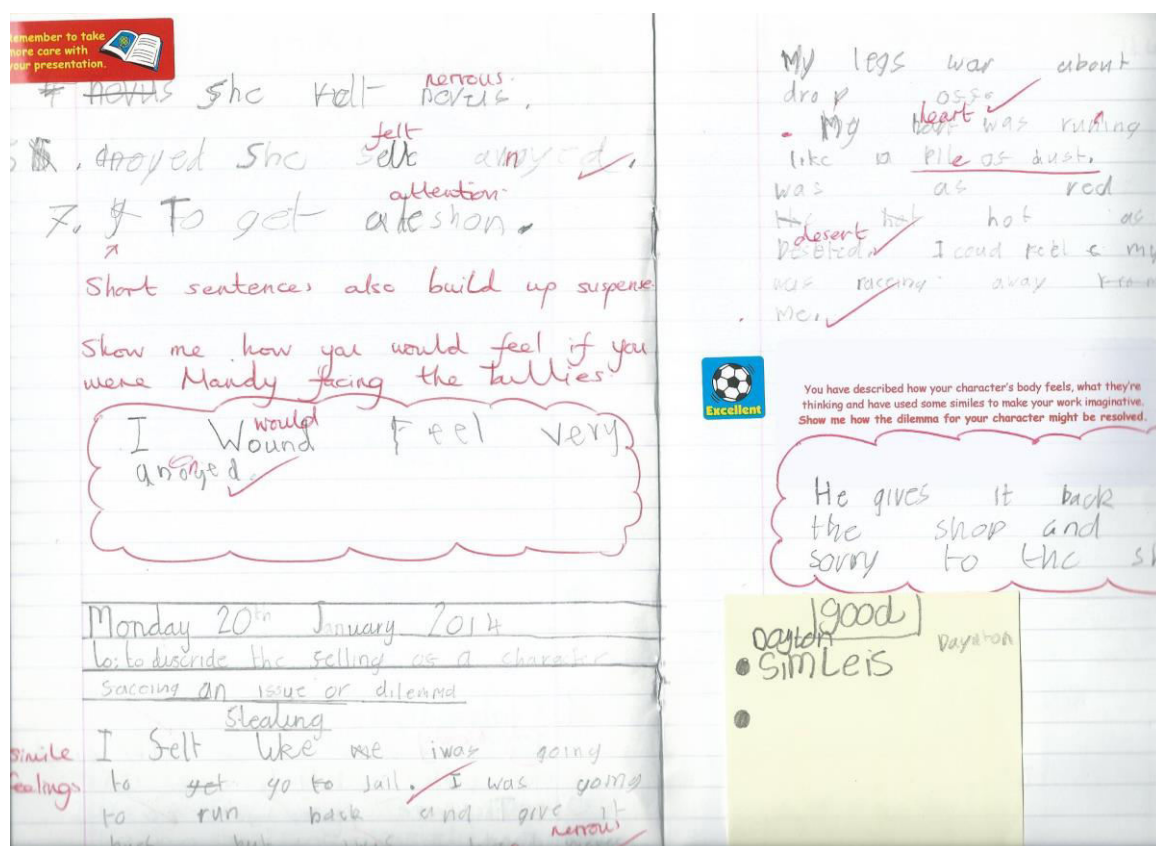 Remember to take
more care with
your presentation.
novus She velt novus.
nervous.
anoyed She selt annoyed.
felt
attention.
7. To get ateshon.
Short sentences also build up suspense.
Show me how you would feel if you
were Mandy facing the bullies.
I Wound Feel very
would
anoyed.
Monday 20th January 2014
Lo: to discride the felling as a character
saceing an issue or dilemma
Stealing
simile
feelings
I Selt like me iwas going
to get go to Jail. I was going
to run back and give it
nervous
My legs war about
drop
heart
My was runing
like a Pile as dust.
was as red
hot hot as
desert
I coud feel my
was raceing away from
me.
Excellent
You have described how your character's body feels, what they're
thinking and have used some similes to make your work imaginative.
Show me how the dilemma for your character might be resolved.
He gives it back
the shop and
sorry to the
good
Dayton
Dayaton
SimLeis